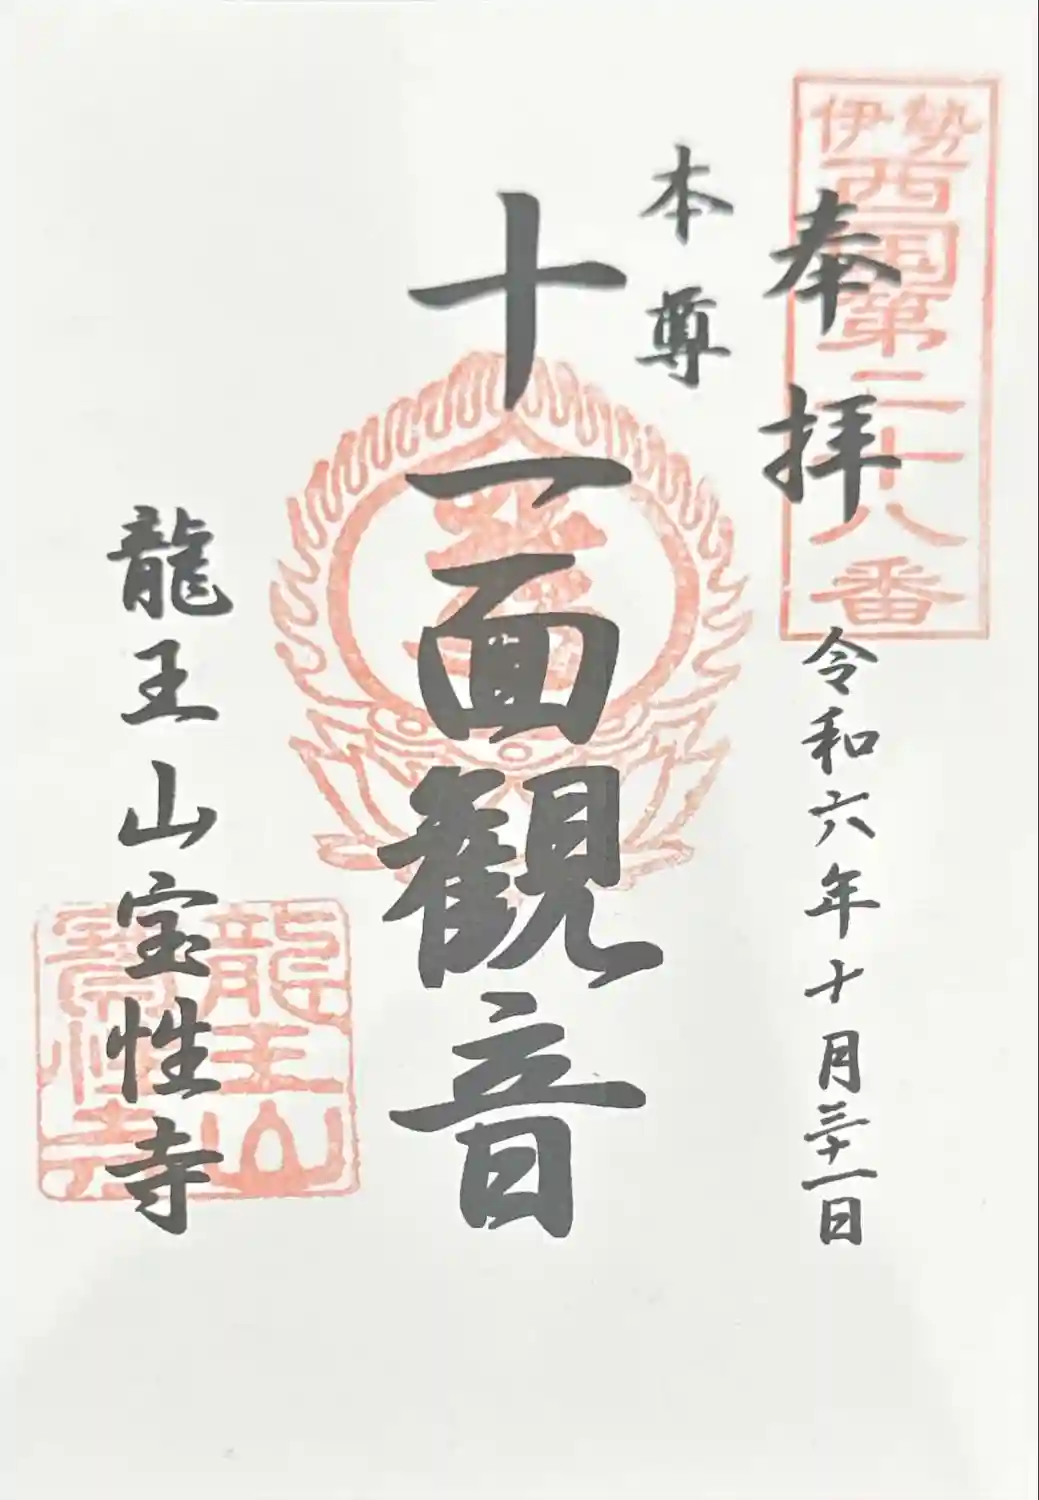 伊勢
西国第二十八番
奉拝
令和六年十月三十一日
本尊
十一面観音
龍王山宝性寺
龍王山
寳性寺